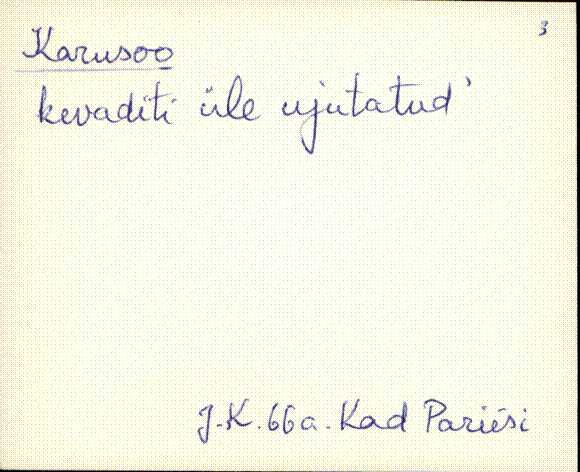 3
Karusoo
kevaditi üle ujutatud'
J-K. 66a. Kad Pariisi